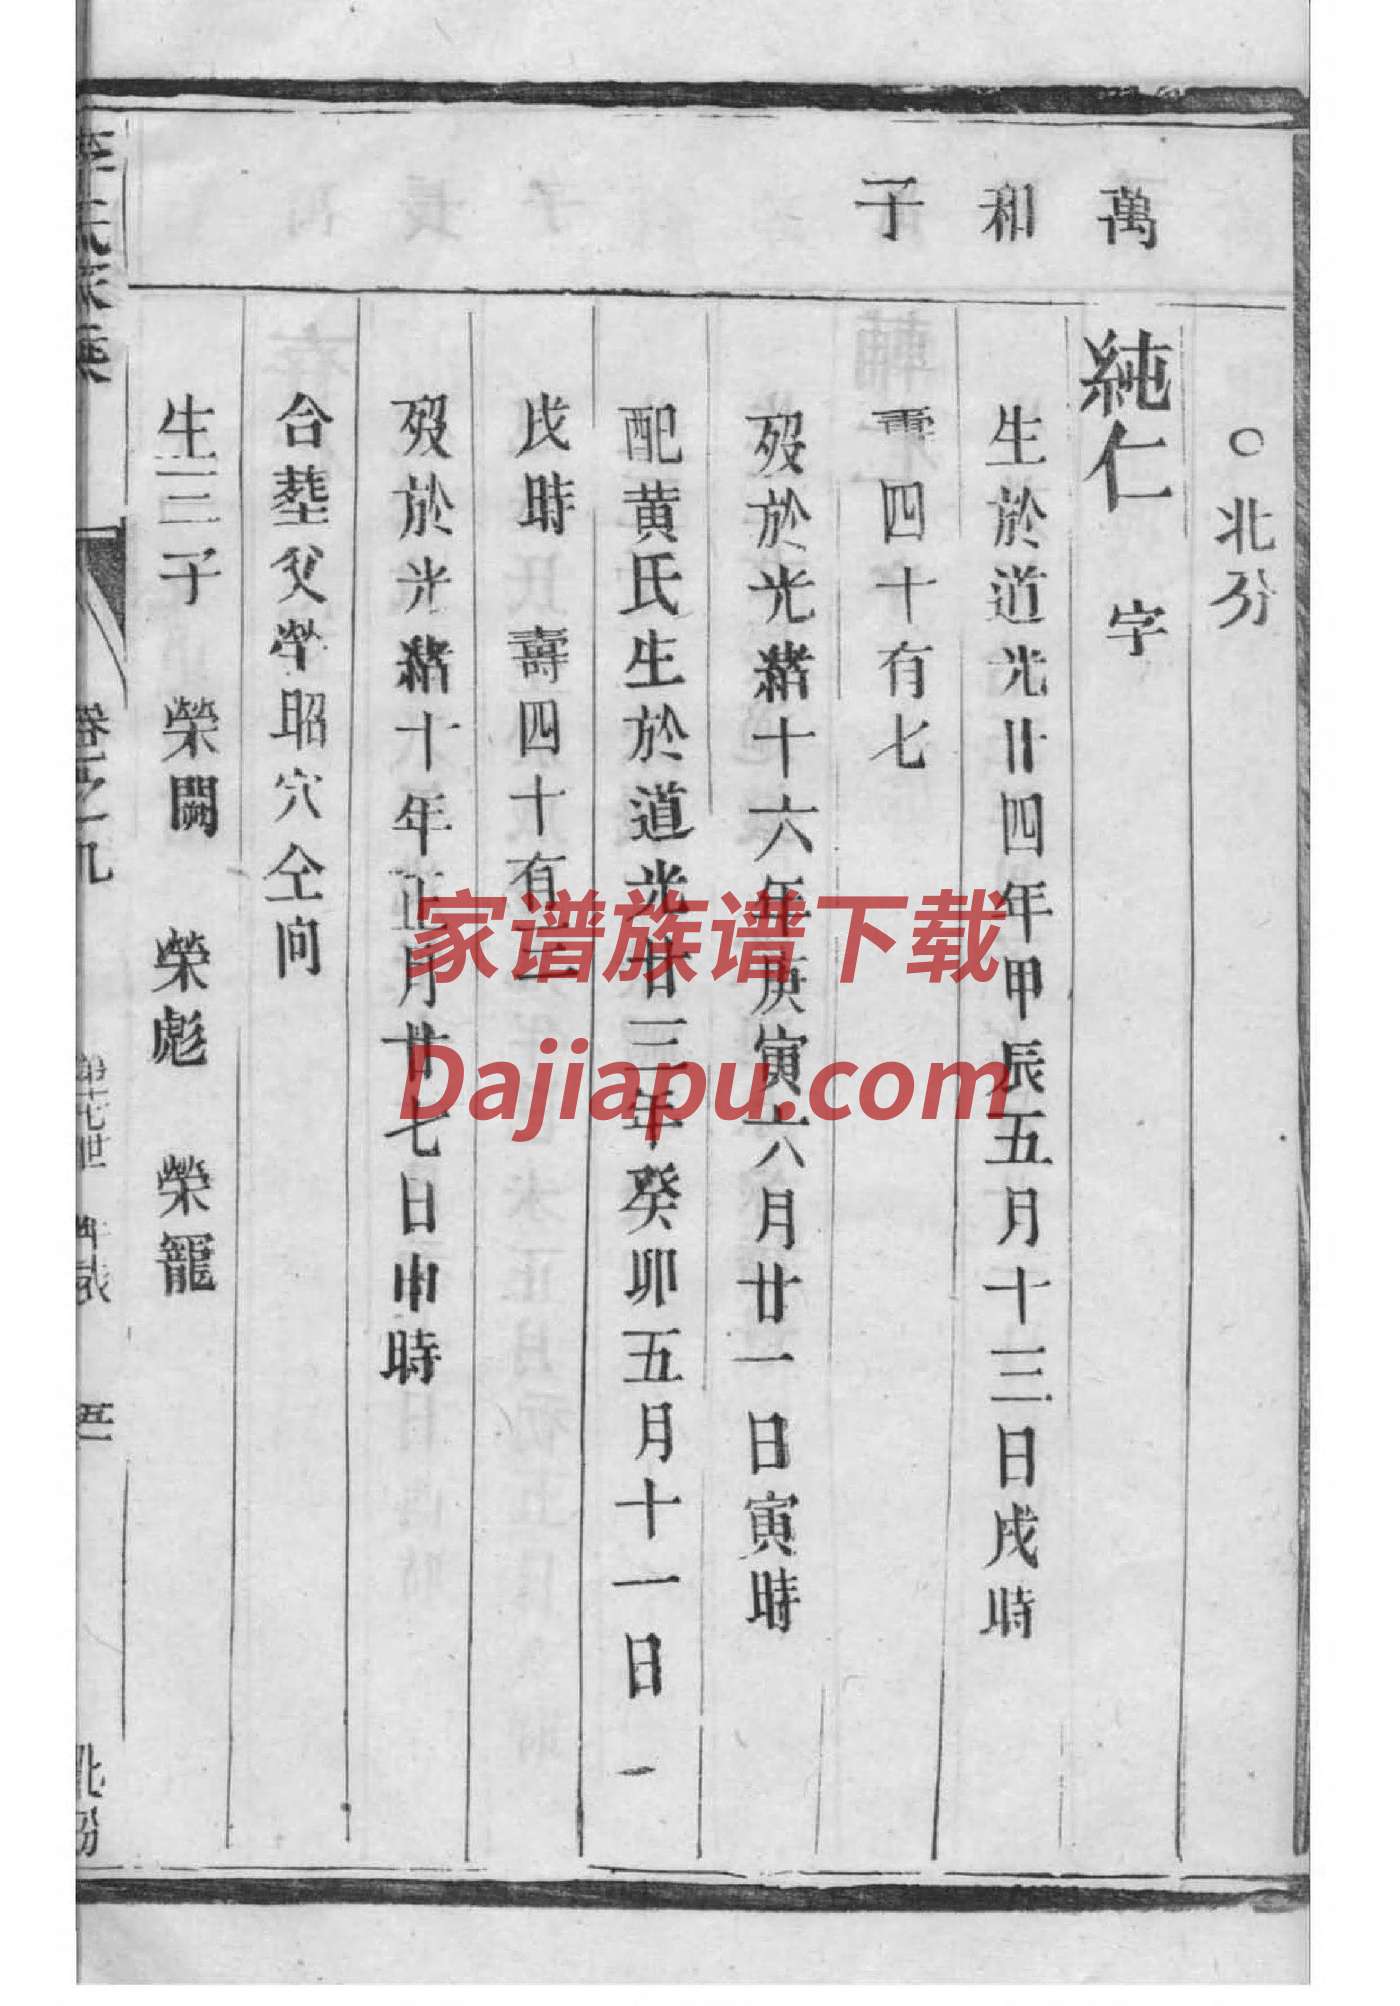 ○北分
萬和子
純仁 字
生於道光廿四年甲辰五月十三日戌時
壽四十有七
歿於光緒十六年庚寅六月廿一日寅時
配黄氏生於道光廿三年癸卯五月十一日
戌時 壽四十有二
歿於光緒十年正月廿七日申時
合塟父茔昭穴仝向
生三子 榮闘 榮彪 榮寵
氏家乘
卷之九
北分
家谱族谱下载
Dajiapu.com